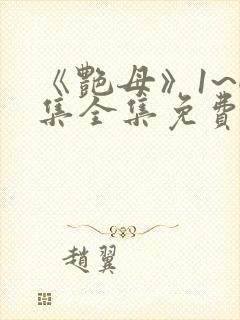 《艷母》1~
集全集免費
趙翼